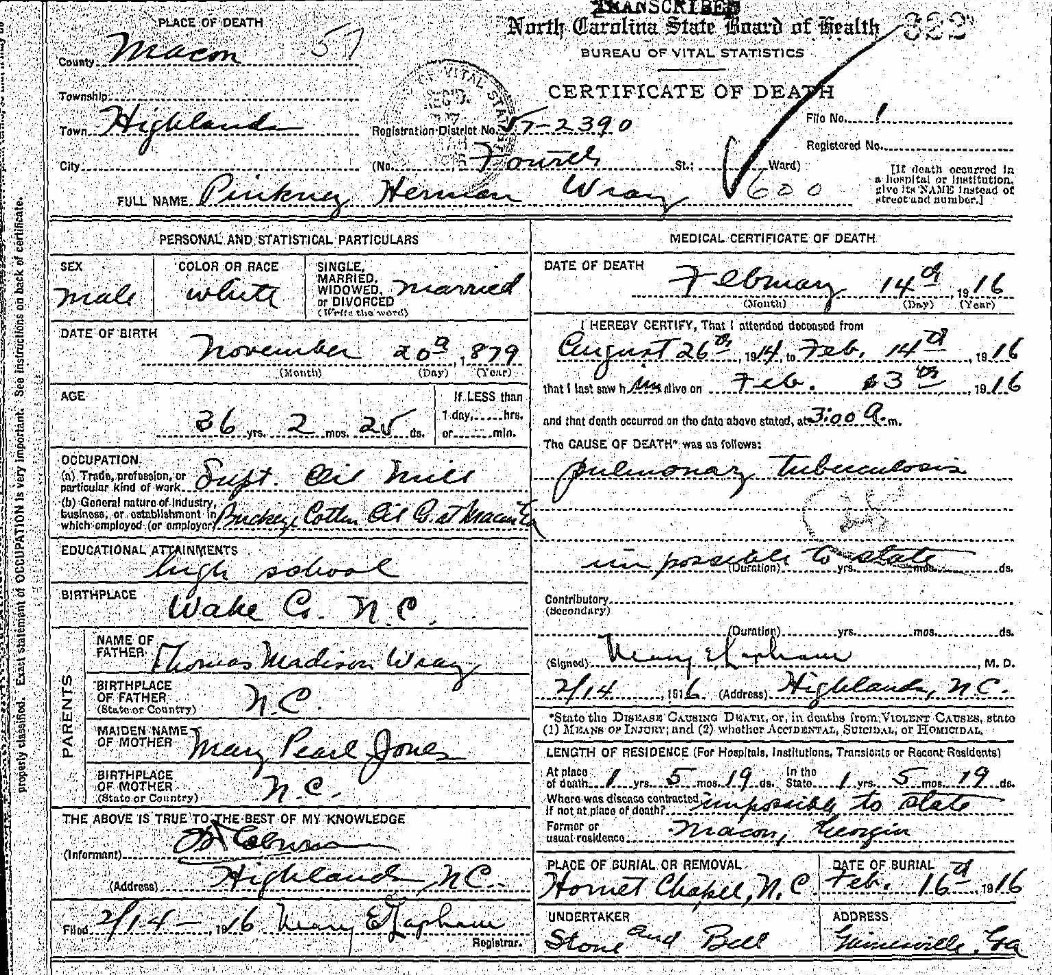 TRANSCRIBED
PLACE OF DEATH
North Carolina State Board of Health 322
County Macon 57
BUREAU OF VITAL STATISTICS
CERTIFICATE OF DEATH
Township
Town Highlands
Registration District No. T-2390
File No. 1
Registered No.
City
(No. Fourth St.; Ward)
[If death occurred in a hospital or institution, give its NAME instead of street and number.]
FULL NAME Pinkney Herman Wray 600
PERSONAL AND STATISTICAL PARTICULARS
SEX
male
COLOR OR RACE
white
SINGLE, MARRIED, WIDOWED, or DIVORCED married
(Write the word)
DATE OF BIRTH
November 20th, 1879
(Month) (Day) (Year)
AGE
36 yrs. 2 mos. 25 ds.
If LESS than
1 day, hrs.
or min.
OCCUPATION
(a) Trade, profession, or particular kind of work Supt. Oil Mill
(b) General nature of industry, business, or establishment in which employed (or employer) Buckeye Cotton Oil Co. at Macon Ga
EDUCATIONAL ATTAINMENTS
high school
BIRTHPLACE
Wake Co. N.C.
PARENTS
NAME OF FATHER Thomas Madison Wray
BIRTHPLACE OF FATHER
(State or Country) N.C.
MAIDEN NAME OF MOTHER Mary Pearl Jones
BIRTHPLACE OF MOTHER
(State or Country) N.C.
THE ABOVE IS TRUE TO THE BEST OF MY KNOWLEDGE
(Informant)
(Address) Highlands, N.C.
Filed 2/14 - 1916 Mary E Lapham
Registrar.
MEDICAL CERTIFICATE OF DEATH
DATE OF DEATH
February 14th, 1916
(Month) (Day) (Year)
I HEREBY CERTIFY, That I attended deceased from
August 26th, 1914, to Feb. 14th, 1916
that I last saw him alive on Feb. 3th, 1916
and that death occurred on the date above stated, at 3:00 a.m.
The CAUSE OF DEATH* was as follows:
pulmonary tuberculosis
28
impossible to state
(Duration) yrs. mos. ds.
Contributory
(Secondary)
(Duration) yrs. mos. ds.
(Signed) Mary E Lapham, M. D.
2/14, 1916 (Address) Highlands, N.C.
*State the DISEASE CAUSING DEATH, or, in deaths from VIOLENT CAUSES, state
(1) MEANS OF INJURY; and (2) whether ACCIDENTAL, SUICIDAL, or HOMICIDAL.
LENGTH OF RESIDENCE (For Hospitals, Institutions, Transients or Recent Residents)
At place of death 1 yrs. 5 mos. 19 ds. In the State 1 yrs. 5 mos. 19 ds.
Where was disease contracted, if not at place of death? impossible to state
Former or usual residence Macon, Georgia
PLACE OF BURIAL OR REMOVAL
Hornet Chapel, N.C
DATE OF BURIAL
Feb. 16th 1916
UNDERTAKER
Stone and Bell
ADDRESS
Gainesville, Ga
properly classified. Exact statement of OCCUPATION is very important. See instructions on back of certificate.